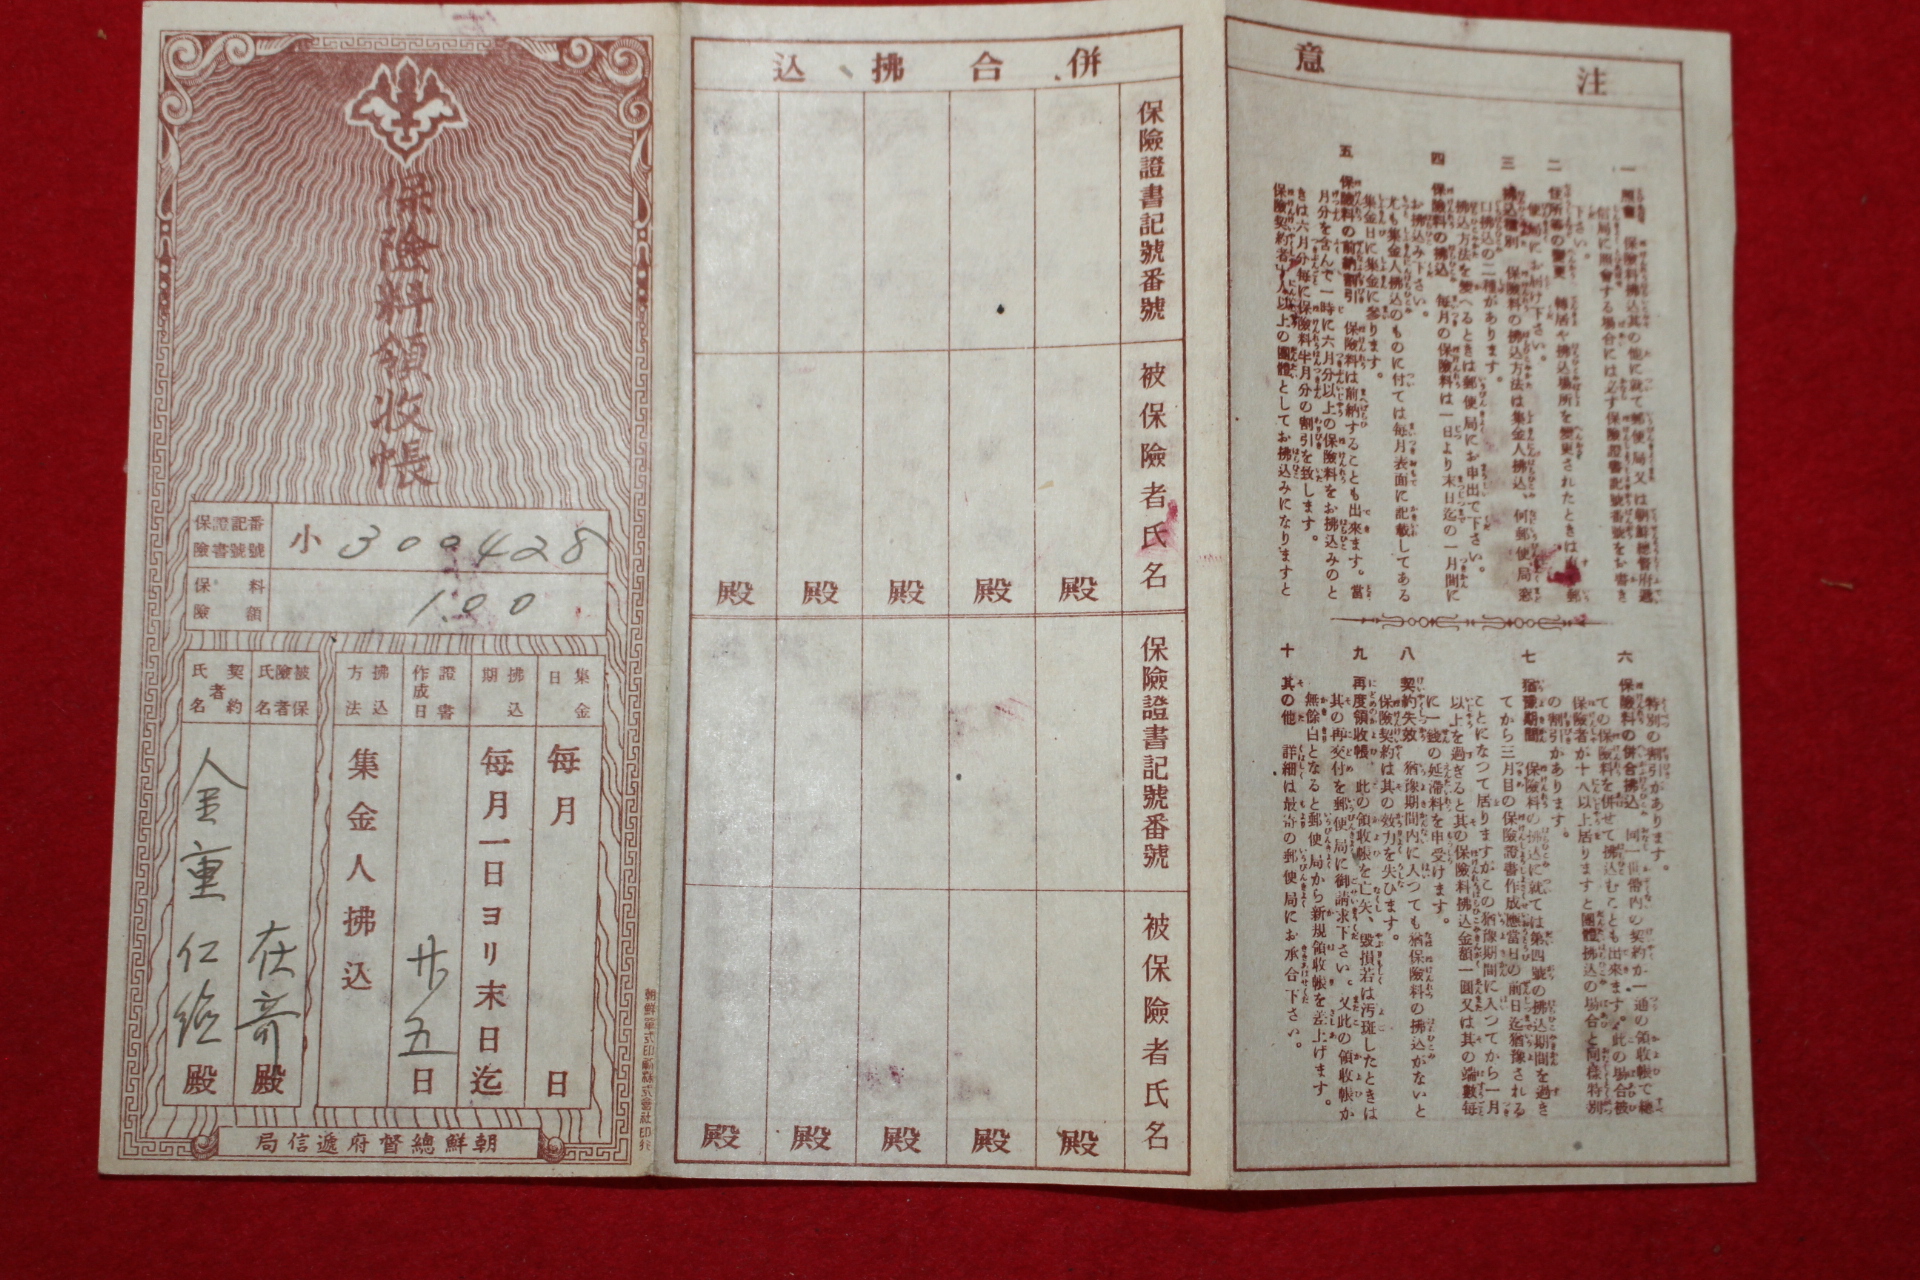 保險料領收帳
保險證書記號番號
小 300428
保險料額
1.00
集金日
每月 日
拂込期
每月一日ヨリ末日迄
證書作成日
廿五日
拂込方法
集金人拂込
被保險者氏名
殿
契約者氏名
金重仁 殿
朝鮮總督府遞信局
併合拂込
保險證書記號番號
被保險者氏名
殿 殿 殿 殿 殿
保險證書記號番號
被保險者氏名
殿 殿 殿 殿 殿
注意
一 照會 保險料拂込其の他に就て郵便局又は朝鮮總督府遞
信局に照會する場合には必ず保險證書記號番號をお書き
下さい。
二 住所等の變更 轉居や拂込場所を變更されたときは直
便局にお届け下さい。
三 拂込種別 保險料の拂込方法は集金人拂込、何郵便局窓
口拂込の二種があります。
拂込方法を變へるときは郵便局にお申出で下さい。
四 保險料の拂込 每月の保險料は一日より末日迄の一月間に
お拂込み下さい。
尤も集金人拂込のものに付ては每月表面に記載してある
集金日に集金に參ります。
五 保險料の前納割引 保險料は前納することも出來ます。當
月分を含んで一時に六月分以上の保險料をお拂込みのと
きは六月分每に保險料半月分の割引を致します。
保險契約者十人以上の團體としてお拂込みになりますと
特別の割引があります。
六 保險料の併合拂込 同一世帶内の契約か一通の領收帳で總
ての保險料を併せて拂込むことも出來ます。此の場合被
保險者が十八以上居りますと團體拂込の場合と同樣特別
の割引かあります。
七 猶豫期間 保險料の拂込に就ては第四號の拂込期間を過き
てから三月目の保險證書作成應當日の前日迄猶豫される
ことになつて居りますかこの猶豫期間に入つてから一月
以上を過ぎると其の保險料拂込金額一圓又は其の端數每
に一錢の延滯料を申受けます。
八 契約失效 猶豫期間内に入つても猶保險料の拂込がないと
保險契約は其の效力を失ひます。
九 再度領收帳 此の領收帳を亡失、毀損若は汚斑したときは
其の再交付を郵便局に御請求下さい。又此の領收帳か
無餘白となると郵便局から新規領收帳を差上げます。
十 其の他 詳細は最寄の郵便局にお承合下さい。